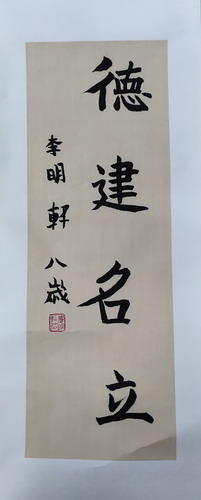 德建名立
李明軒 八歲